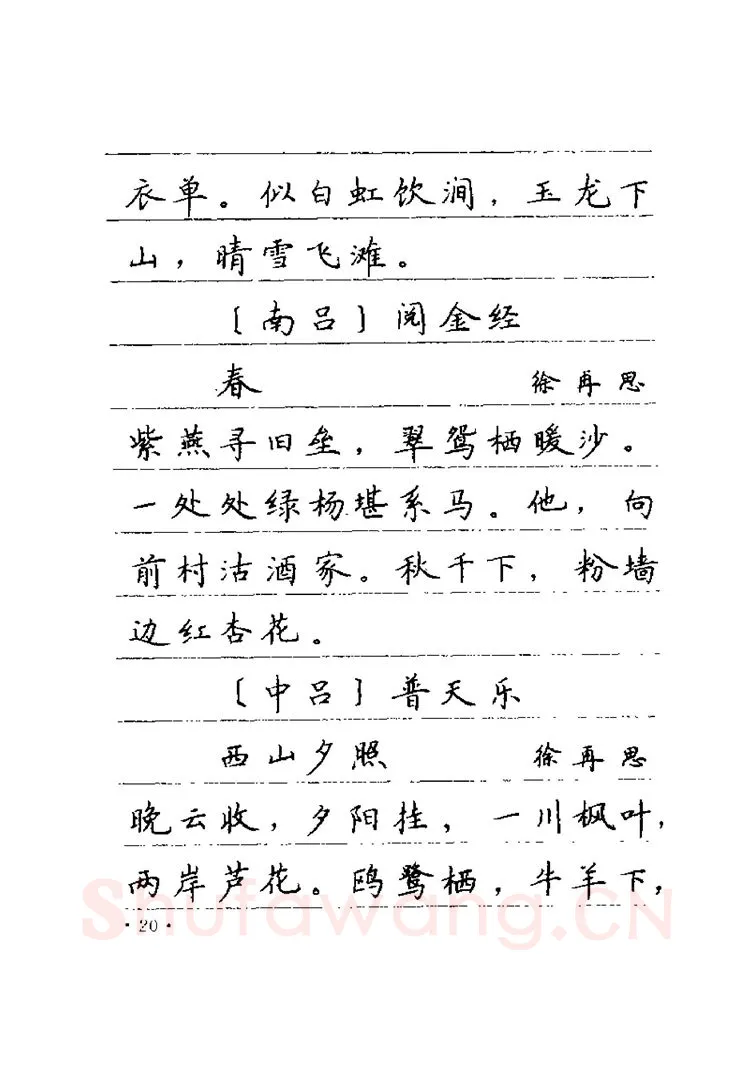 衣单。似白虹饮涧，玉龙下
山，晴雪飞滩。
〔南吕〕阅金经
春 徐再思
紫燕寻旧垒，翠鸳栖暖沙。
一处处绿杨堪系马。他，向
前村沽酒家。秋千下，粉墙
边红杏花。
〔中吕〕普天乐
西山夕照 徐再思
晚云收，夕阳挂，一川枫叶，
两岸芦花。鸥鹭栖，牛羊下，
Shufawang.CN
·20·